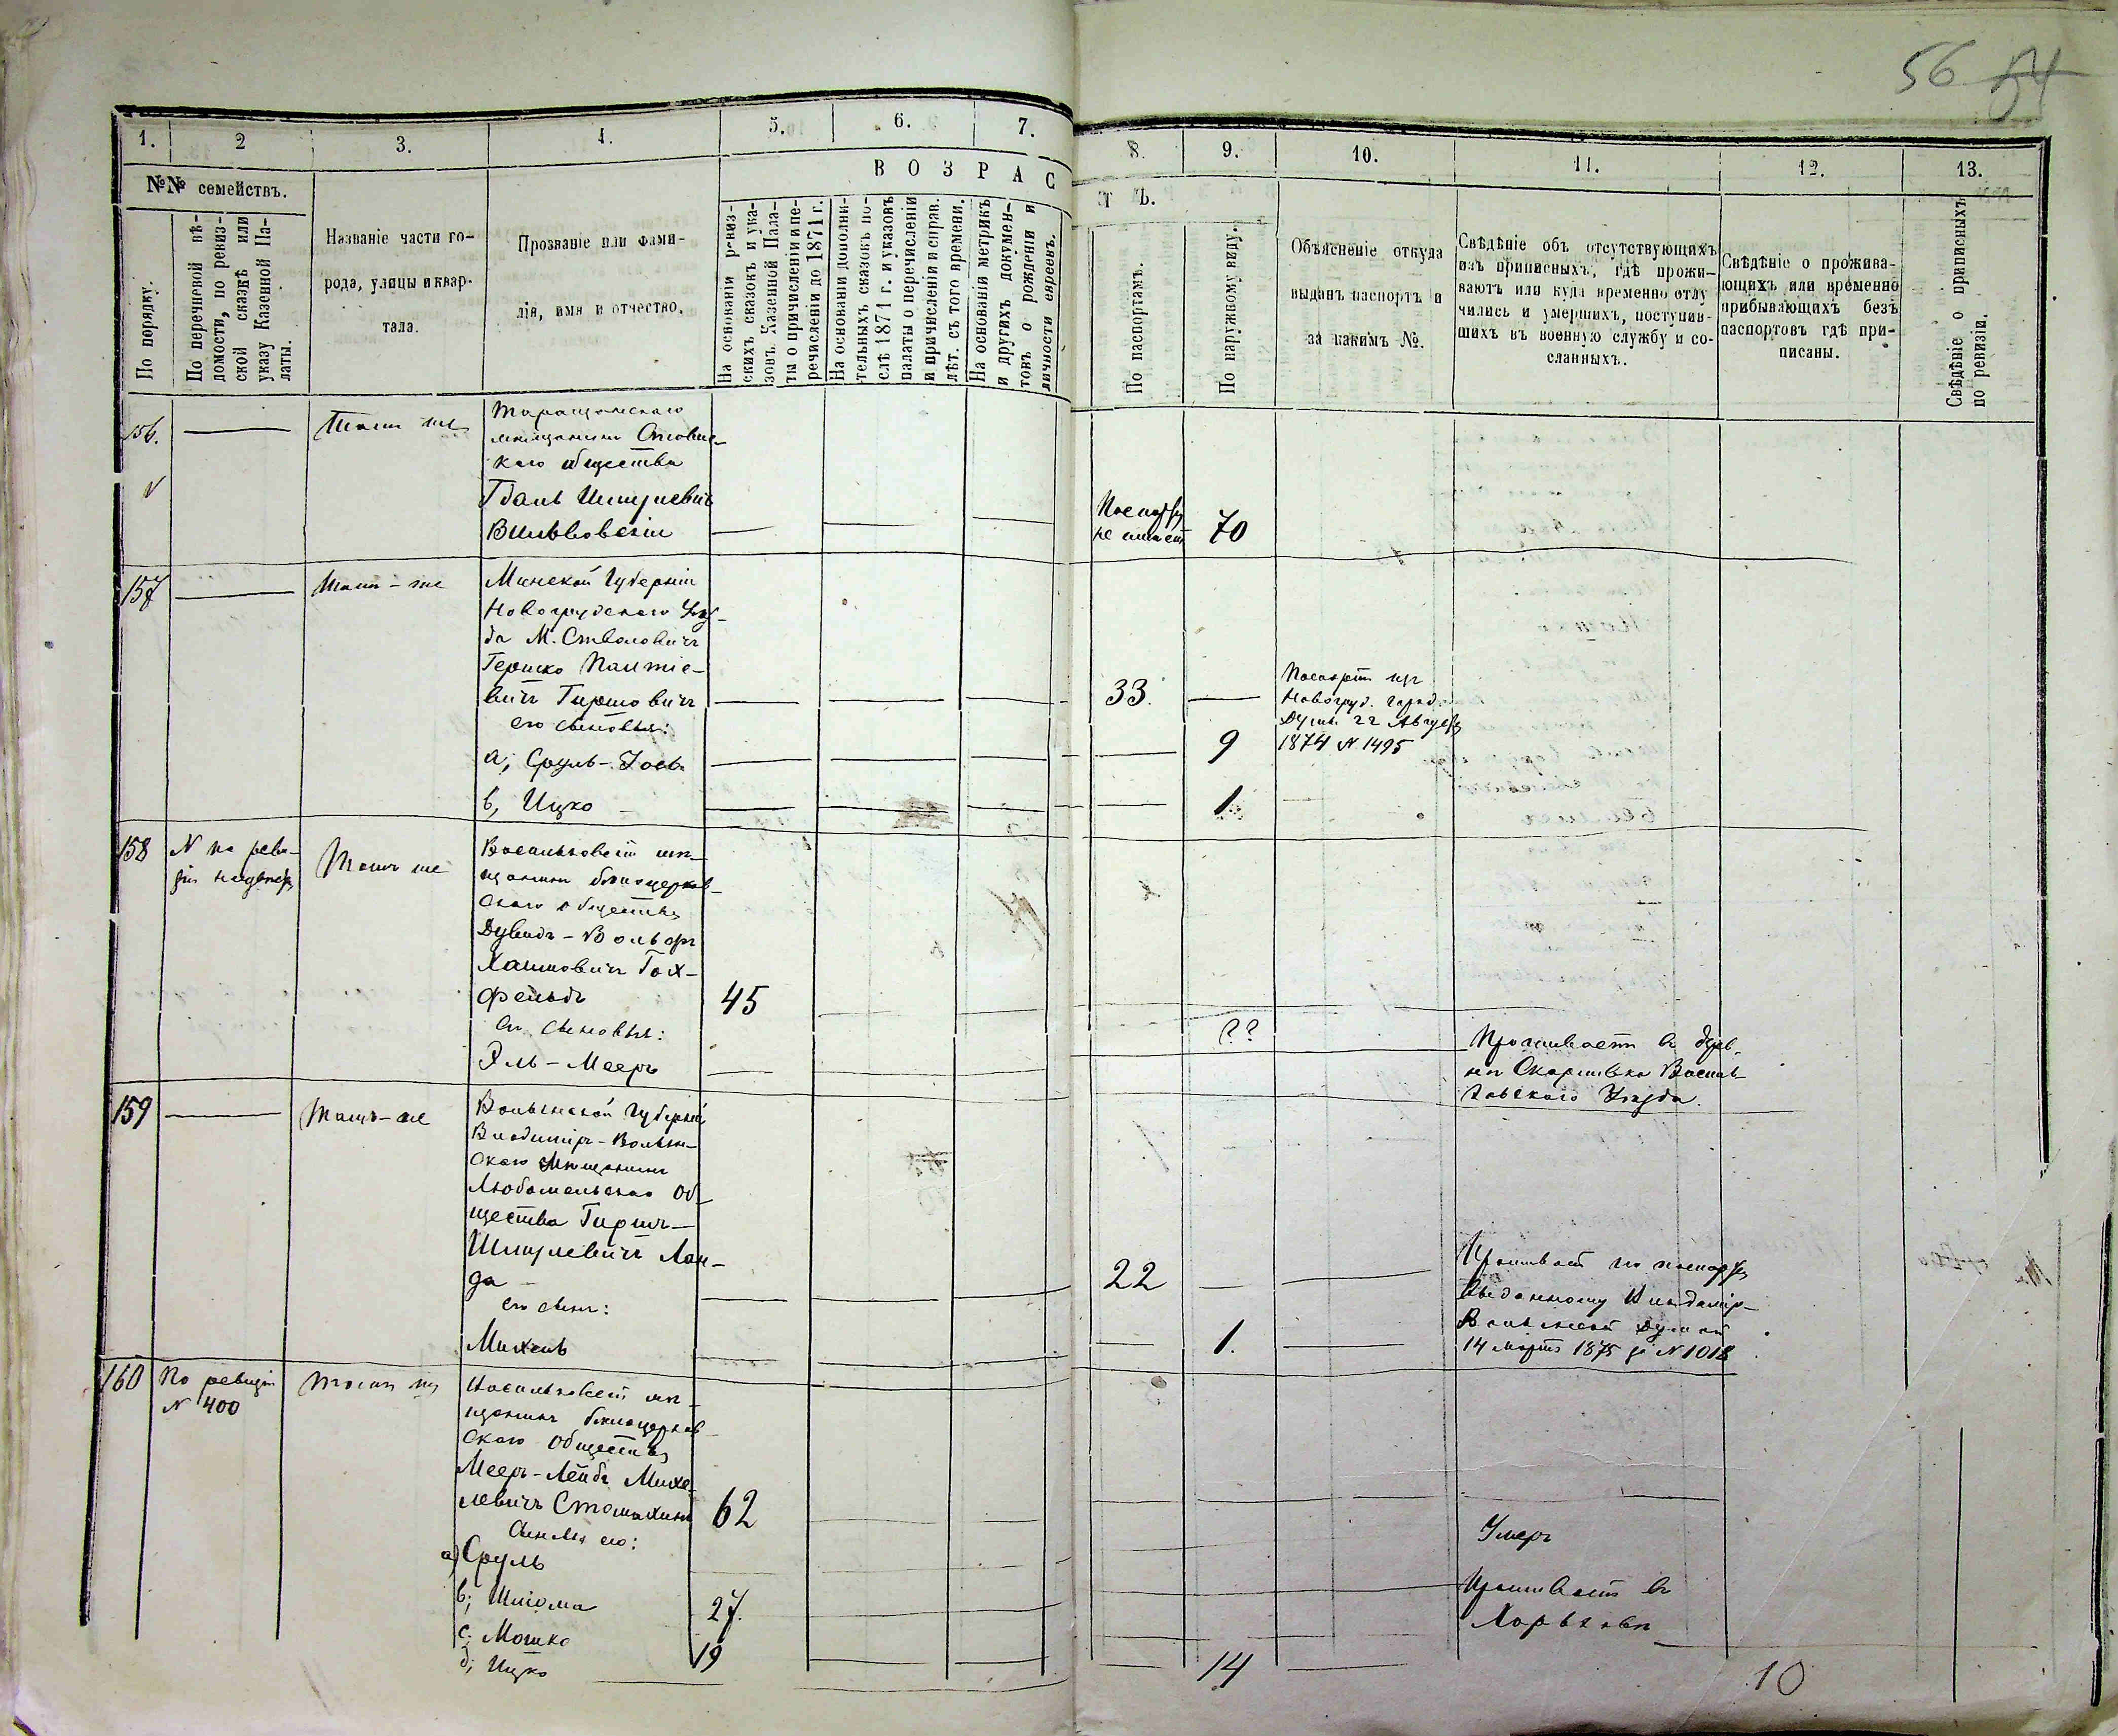 56 54
1. 2 3. 4. 5. 6. 7. 8. 9. 10. 11. 12. 13.
В О З Р А С Т Ъ.
№№ семействъ.
По порядку.
По перечневой вѣ-
домости, по ревиз-
ской сказкѣ или
указу Казенной Па-
латы.
Названіе части го-
рода, улицы и квар-
тала.
Прозваніе или фами-
лія, имя и отчество.
На основаніи ревиз-
скихъ сказокъ и ука-
зовъ Казенной Пала-
ты о причисленіи и пе-
речисленіи до 1871 г.
На основаніи дополни-
тельныхъ сказокъ по-
слѣ 1871 г. и указовъ
палаты о перечисленіи
и причисленіи и справ.
лѣт. съ того времени.
На основаніи метрикъ
и другихъ докумен-
товъ о рожденіи и
личности евреевъ.
По паспортамъ.
По наружному виду.
Объясненіе откуда
выданъ паспортъ и
за какимъ №.
Свѣдѣніе объ отсутствующихъ
изъ приписныхъ, гдѣ прожи-
ваютъ или куда временно отлу
чились и умершихъ, поступив-
шихъ въ военную службу и со-
сланныхъ.
Свѣдѣніе о прожива-
ющихъ или временно
прибывающихъ безъ
паспортовъ гдѣ при-
писаны.
Свѣдѣніе о приписныхъ
по ревизіи.
156. Тамъ же
Таращанскаго
мѣщанина
каго общества
Шмулевичъ
Паспорта
не имѣетъ 70
157 Тамъ-же
Минской Губерніи
Новогрудскаго Уѣз-
да М. Столовичи
Гершко
вичъ Гиршовичъ
33.
его сыновья:
а, Сруль-Іось 9
в, Ицко 1.
Паспортъ изъ
Новогруд. Город.
Думы 22 Августа
1874 № 1495
158 № по реви-
зіи Тамъ же
Васильковскій мѣ-
щанинъ бѣлоцерков-
скаго общества
Дувидъ-Вольфъ
Хаимовичъ Гох-
фельдъ 45
его сыновья:
Эль-Мееръ ??
Проживаетъ въ дерев-
нѣ Василь-
ковскаго Уѣзда.
159 Тамъ-же
Волынской Губерніи
Владимір-Волын-
скаго мѣщанинъ
Любомльскаго Об-
щества Гиршъ-
Шмулевичъ Лан-
да 22
его сынъ:
Михель 1.
Проживаетъ по паспорту
выданному Владимір-
Волынской Думой
14 Марта 1875 за № 1018
160 По ревизіи
№ 400
Тамъ же
Васильковскій мѣ-
щанинъ бѣлоцерков-
скаго Общества
Мееръ-Лейбъ Михе-
левичъ Стомахинъ 62
сыновья его:
а) Сруль Умеръ
в; Шлiома 27. Проживаетъ въ
Харьковѣ
с; Мошко 19
д; Ицко 14
10